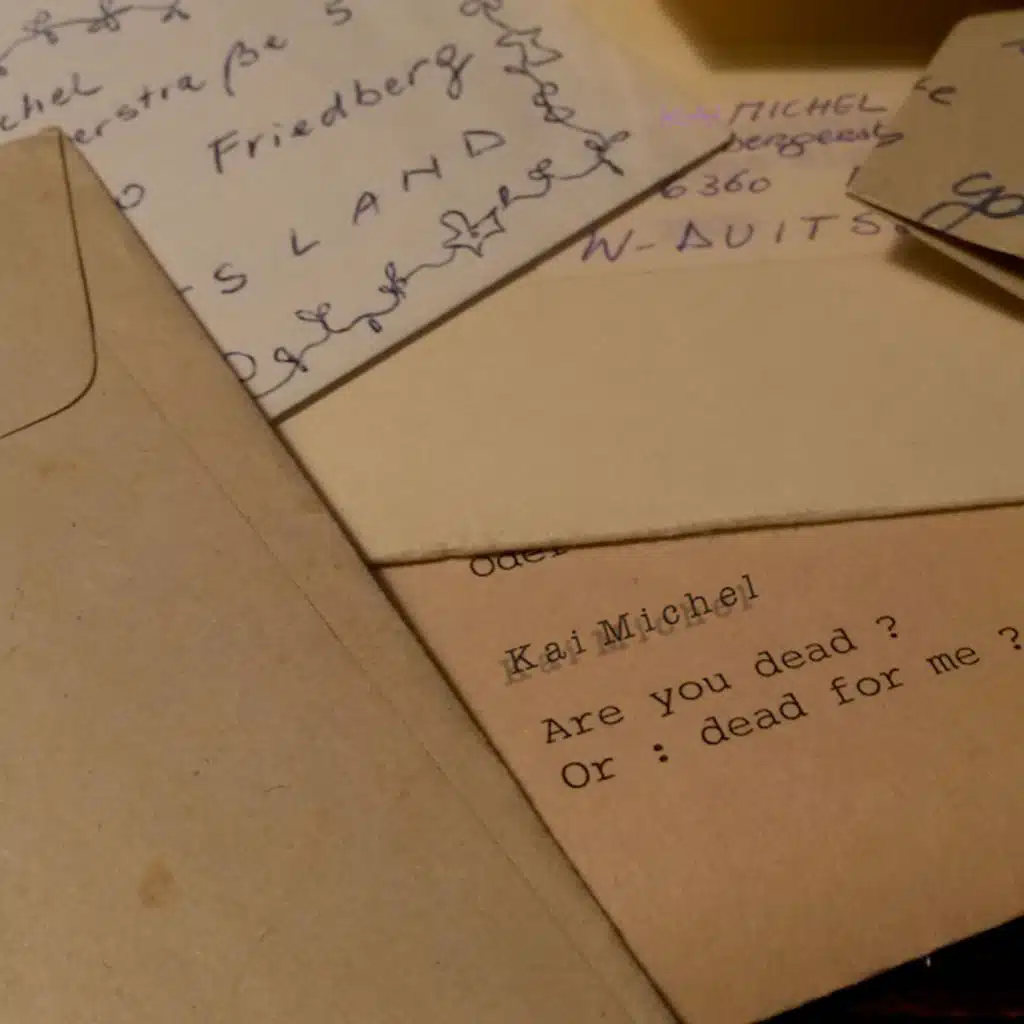 5
chel
erstraße
Friedberg
S L A N D
MICHEL
6360
W-DUITS
Oder
Kai Michel
Are you dead ?
Or : dead for me ?